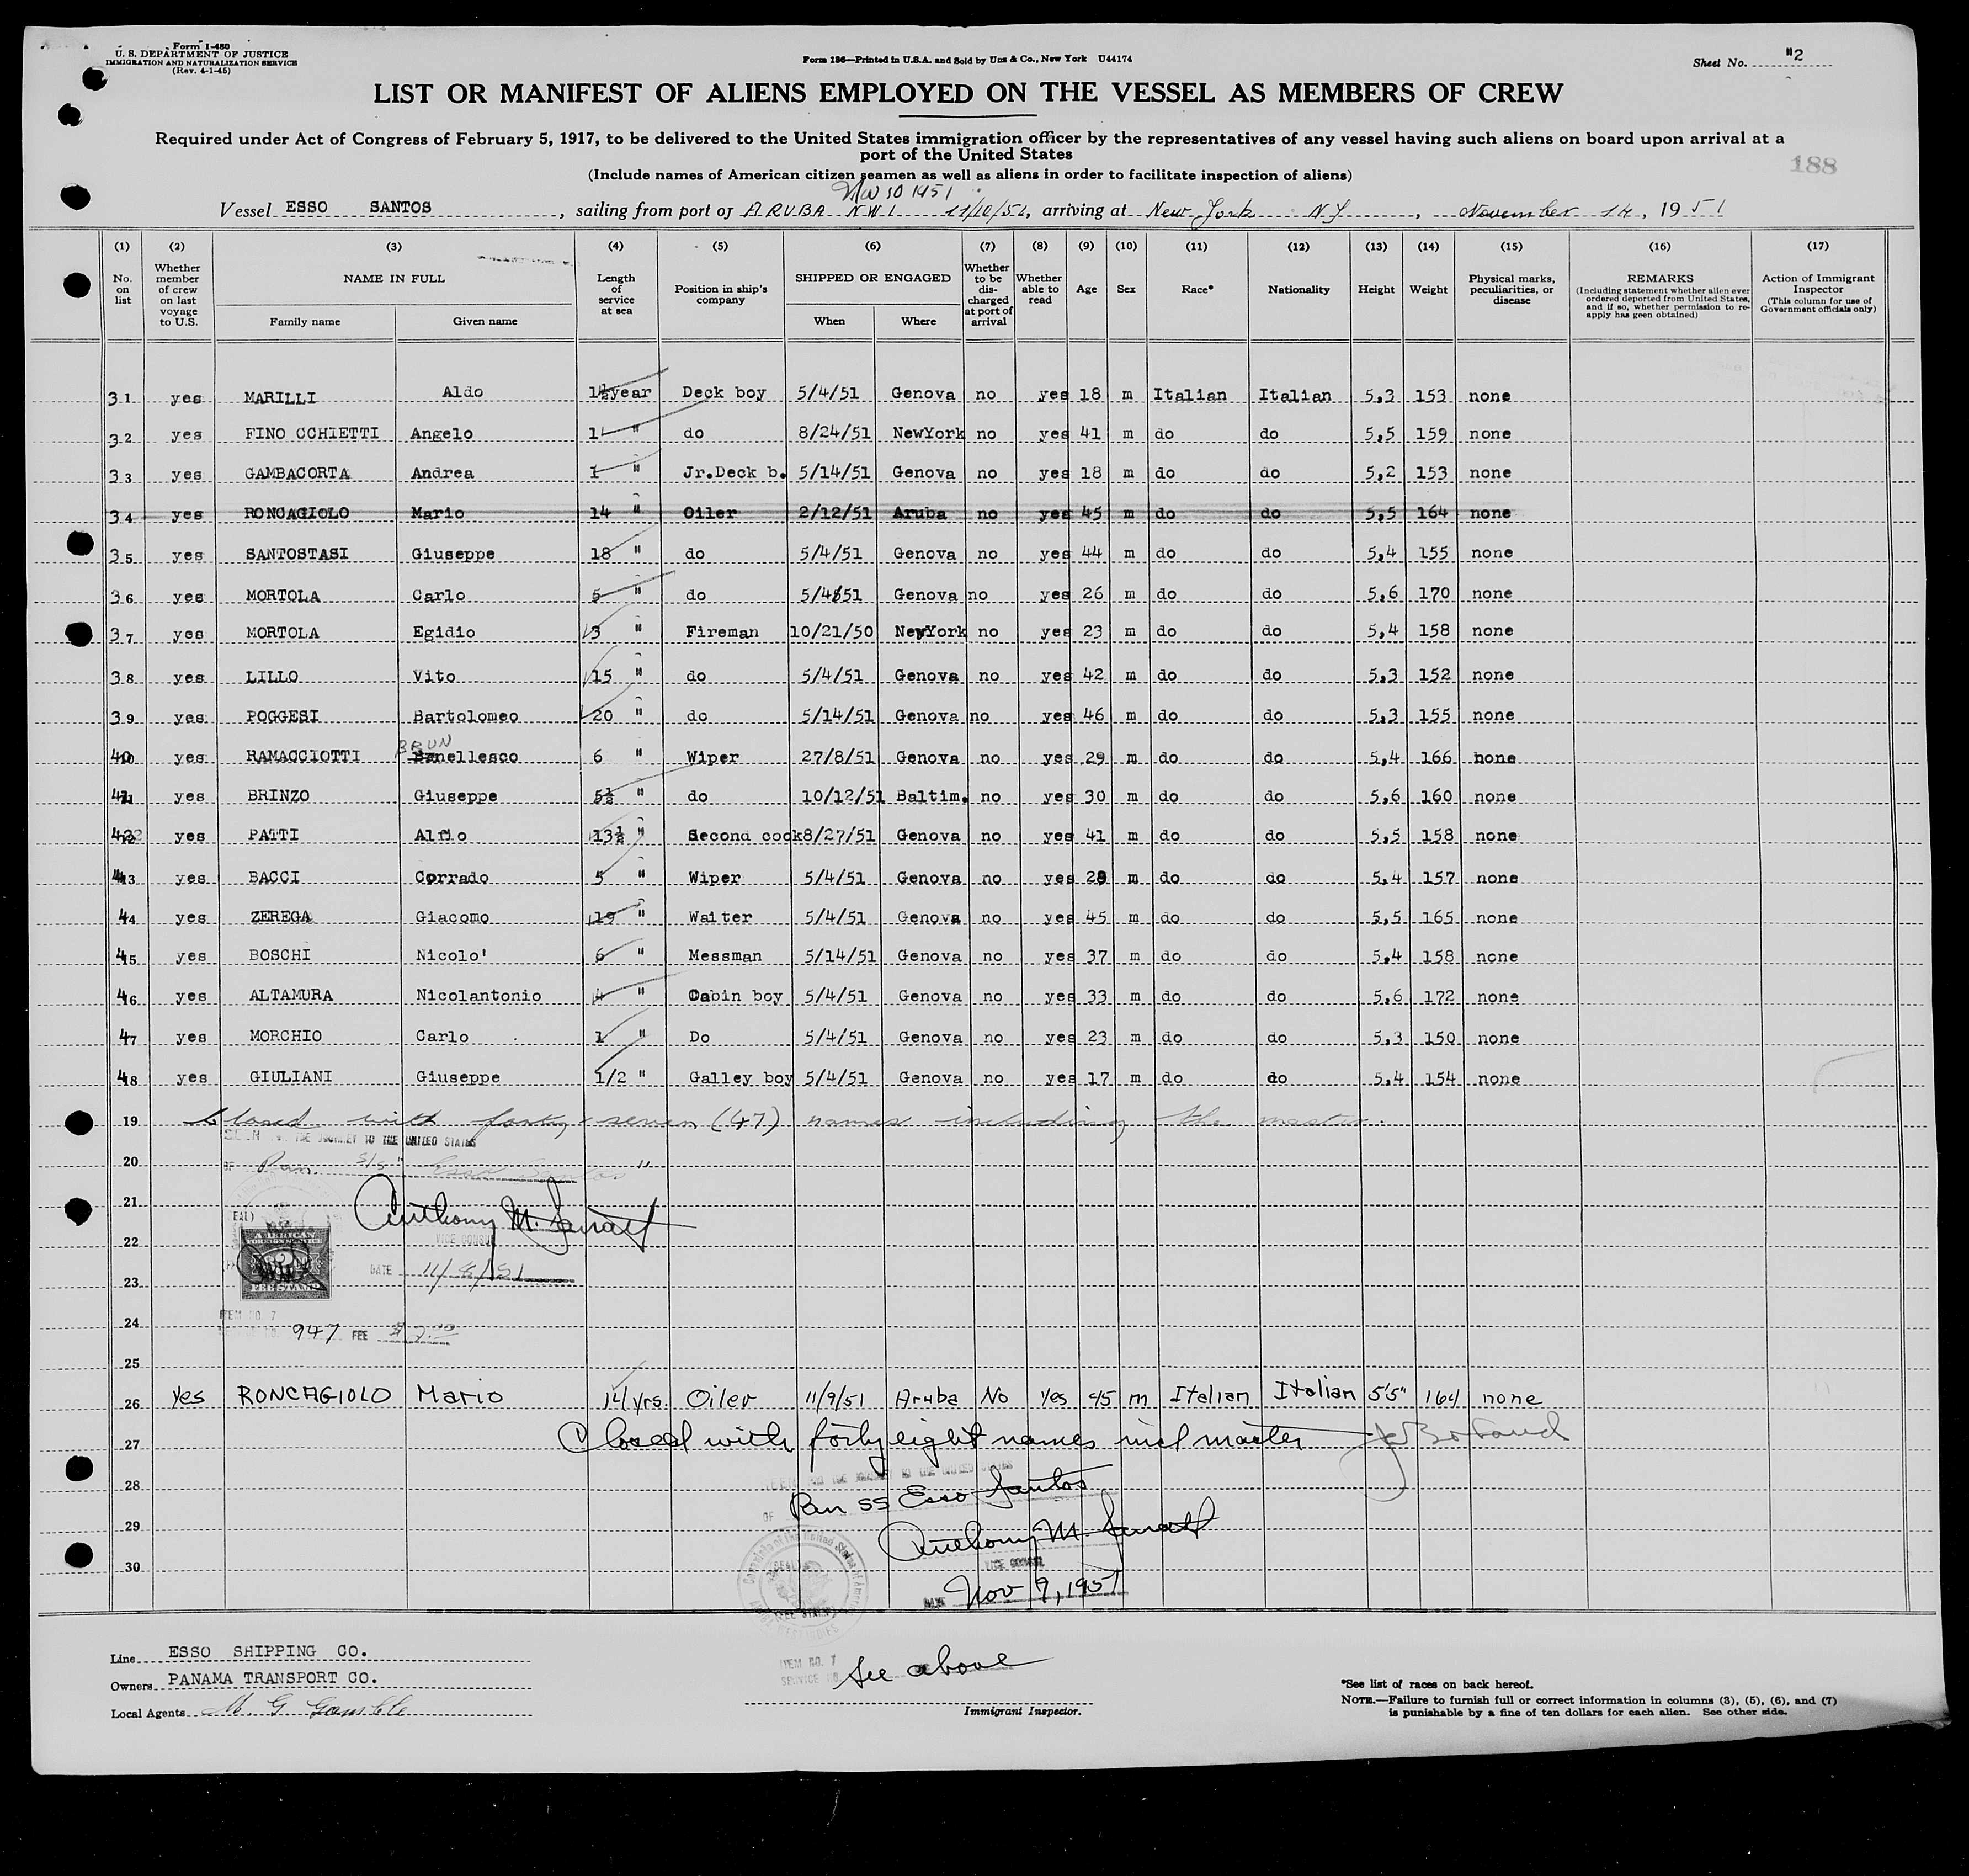 Form I-480
U. S. DEPARTMENT OF JUSTICE
IMMIGRATION AND NATURALIZATION SERVICE
(Rev. 4-1-45)
Form 186—Printed in U.S.A. and Sold by Unz & Co., New York U44174
Sheet No. #2
LIST OR MANIFEST OF ALIENS EMPLOYED ON THE VESSEL AS MEMBERS OF CREW
Required under Act of Congress of February 5, 1917, to be delivered to the United States immigration officer by the representatives of any vessel having such aliens on board upon arrival at a
port of the United States
188
(Include names of American citizen seamen as well as aliens in order to facilitate inspection of aliens)
Nov 10 1951
Vessel ESSO SANTOS, sailing from port of ARUBA NWI 11/10/51, arriving at New York NY, November 14, 1951
(1) (2) (3) (4) (5) (6) (7) (8) (9) (10) (11) (12) (13) (14) (15) (16) (17)
No. on list
Whether member of crew on last voyage to U.S.
NAME IN FULL
Family name Given name
Length of service at sea
Position in ship's company
SHIPPED OR ENGAGED
When Where
Whether to be discharged at port of arrival
Whether able to read
Age
Sex
Race*
Nationality
Height
Weight
Physical marks, peculiarities, or disease
REMARKS
(Including statement whether alien ever ordered deported from United States, and if so, whether permission to re-apply has geen obtained)
Action of Immigrant Inspector
(This column for use of Government officials only)
31 yes MARILLI Aldo 1½year Deck boy 5/4/51 Genova no yes 18 m Italian Italian 5,3 153 none
32 yes FINO CCHIETTI Angelo 1 " do 8/24/51 NewYork no yes 41 m do do 5,5 159 none
33 yes GAMBACORTA Andrea 1 " Jr.Deck b. 5/14/51 Genova no yes 18 m do do 5,2 153 none
34 yes RONCAGIOLO Mario 14 " Oiler 2/12/51 Aruba no yes 45 m do do 5,5 164 none
35 yes SANTOSTASI Giuseppe 18 " do 5/4/51 Genova no yes 44 m do do 5,4 155 none
36 yes MORTOLA Carlo 5 " do 5/4/51 Genova no yes 26 m do do 5,6 170 none
37 yes MORTOLA Egidio 3 " Fireman 10/21/50 NewYork no yes 23 m do do 5,4 158 none
38 yes LILLO Vito 15 " do 5/4/51 Genova no yes 42 m do do 5,3 152 none
39 yes POGGESI Bartolomeo 20 " do 5/14/51 Genova no yes 46 m do do 5,3 155 none
BRUN
40 yes RAMACCIOTTI Benellesco 6 " Wiper 27/8/51 Genova no yes 29 m do do 5,4 166 none
41 yes BRINZO Giuseppe 5½ " do 10/12/51 Baltim. no yes 30 m do do 5,6 160 none
42 yes PATTI Alfio 13½ " Second cook 8/27/51 Genova no yes 41 m do do 5,5 158 none
43 yes BACCI Corrado 5 " Wiper 5/4/51 Genova no yes 28 m do do 5,4 157 none
44 yes ZEREGA Giacomo 19 " Waiter 5/4/51 Genova no yes 45 m do do 5,5 165 none
45 yes BOSCHI Nicolo' 6 " Messman 5/14/51 Genova no yes 37 m do do 5,4 158 none
46 yes ALTAMURA Nicolantonio 4 " Cabin boy 5/4/51 Genova no yes 33 m do do 5,6 172 none
47 yes MORCHIO Carlo 1 " Do 5/4/51 Genova no yes 23 m do do 5,3 150 none
48 yes GIULIANI Giuseppe 1/2 " Galley boy 5/4/51 Genova no yes 17 m do do 5,4 154 none
19 Closed with forty-seven (47) names including the master.
SEEN FOR THE JOURNEY TO THE UNITED STATES
20 OF Pan. S/S "Esso Santos"
21 Anthony M.
22 VICE CONSUL
AMERICAN FOREIGN SERVICE
FEE STAMP
23 DATE 11/8/51
ITEM NO. 7
24 SERVICE NO. 947 FEE $2.00
25
26 Yes RONCAGIOLO Mario 14 yrs. Oiler 11/9/51 Aruba No Yes 45 m Italian Italian 5'5" 164 none
27 Closed with forty eight names incl master
SEEN FOR THE JOURNEY TO THE UNITED STATES
28 OF Pan SS Esso Santos
29 Anthony M.
VICE CONSUL
30 DATE Nov 9, 1951
Line ESSO SHIPPING CO.
Owners PANAMA TRANSPORT CO.
Local Agents M. G. Gamble
ITEM NO. 7
SERVICE NO. See above
Immigrant Inspector.
*See list of races on back hereof.
NOTE.—Failure to furnish full or correct information in columns (3), (5), (6), and (7)
is punishable by a fine of ten dollars for each alien. See other side.